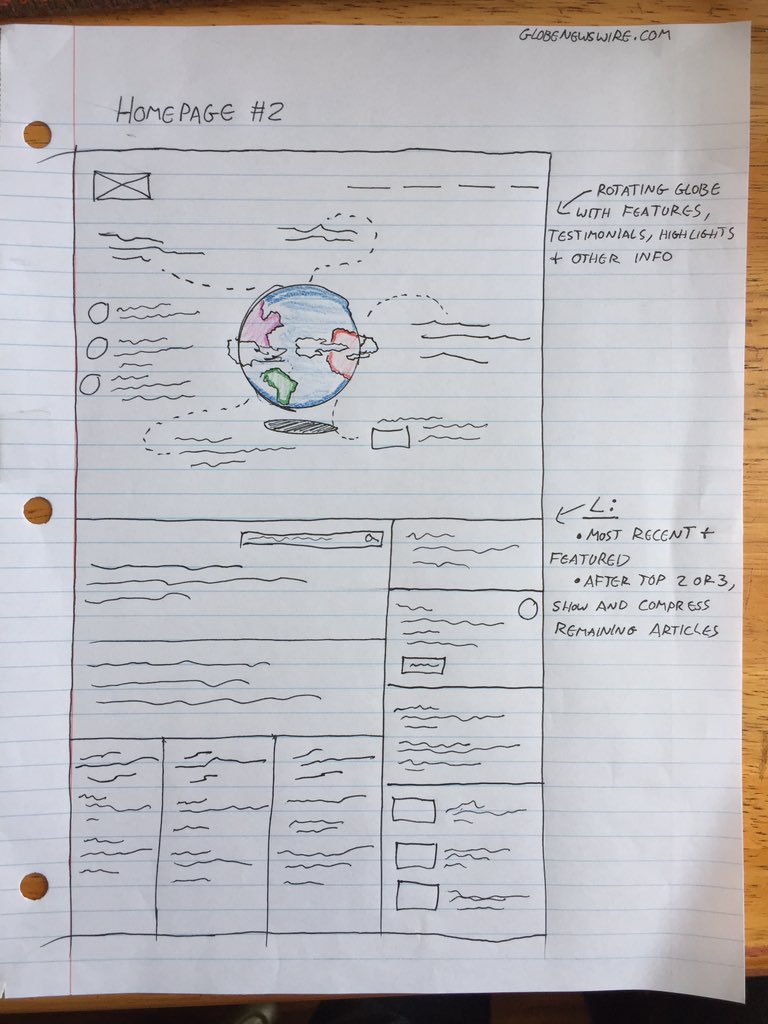 GLOBENEWSWIRE.COM
HOMEPAGE #2
ROTATING GLOBE
WITH FEATURES,
TESTIMONIALS, HIGHLIGHTS
+ OTHER INFO
L:
• MOST RECENT +
FEATURED
• AFTER TOP 2 OR 3,
SHOW AND COMPRESS
REMAINING ARTICLES